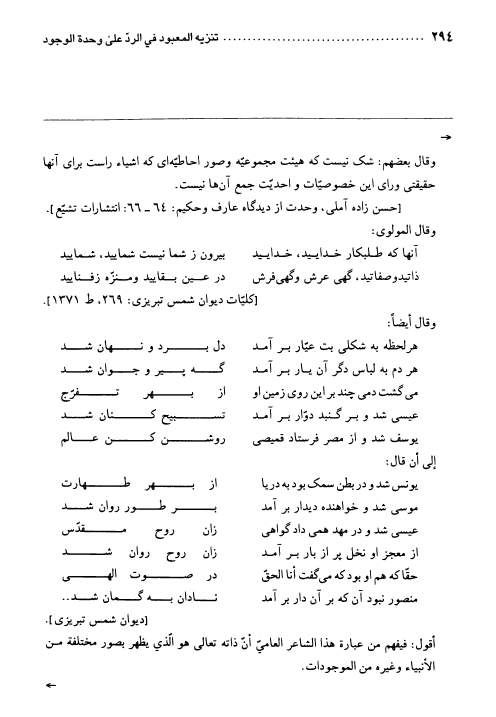 ٢٩٤ ............................................ تنزيه المعبود في الردّ على وحدة الوجود
→
وقال بعضهم: شک نیست که هیئت مجموعیّه وصور احاطیّه‌ای که اشیاء راست برای آنها
حقیقتی ورای این خصوصیّات و احدیّت جمع آن‌ها نیست.
[حسن زاده آملی، وحدت از دیدگاه عارف وحکیم: ٦٤ ـ ٦٦: انتشارات تشیّع].
وقال المولوی:
آنها که طلبکار خدایید، خدایید بیرون ز شما نیست شمایید، شمایید
ذاتیدوصفاتید، گهی عرش وگهی‌فرش در عین بقایید ومنزّه زفنایید
[کلیّات دیوان شمس تبریزی: ٢٦٩، ط ١٣٧١].
وقال أيضاً:
هرلحظه به شکلی بت عیّار بر آمد دل برد و نهان شد
هر دم به لباس دگر آن یار بر آمد گه پیر و جوان شد
می‌گشت دمی چند بر این روی زمین او از بهر تفرّج
عیسی شد و بر گنبد دوّار بر آمد تسبیح کنان شد
یوسف شد و از مصر فرستاد قمیصی روشن کن عالم
إلى أن قال:
یونس شد و در بطن سمک بود به دریا از بهر طهارت
موسی شد و خواهنده دیدار بر آمد بر طور روان شد
عیسی شد و در مهد همی داد گواهی زان روح مقدّس
از معجز او نخل پر از بار بر آمد زان روح روان شد
حقّا که هم او بود که می‌گفت أنا الحقّ در صوت الهی
منصور نبود آن که بر آن دار بر آمد نادان به گمان شد..
[دیوان شمس تبریزی].
أقول: فيفهم من عبارة هذا الشاعر العاميّ أنّ ذاته تعالى هو الّذي يظهر بصور مختلفة مـن
الأنبياء وغيره من الموجودات.
←